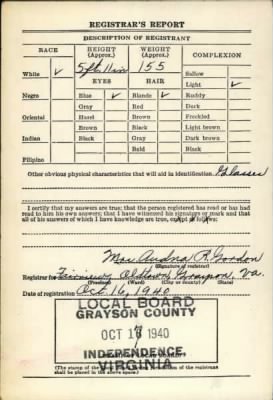 REGISTRAR'S REPORT
DESCRIPTION OF REGISTRANT
RACE HEIGHT (Approx.) WEIGHT (Approx.) COMPLEXION
White ✓ 5 ft 11 in 155 Sallow
EYES HAIR Light ✓
Negro Blue ✓ Blonde ✓ Ruddy
Gray Red Dark
Oriental Hazel Brown Freckled
Brown Black Light brown
Indian Black Gray Dark brown
Bald Black
Filipino
Other obvious physical characteristics that will aid in identification Glasses
I certify that my answers are true; that the person registered has read or has had
read to him his own answers; that I have witnessed his signature or mark and that
all of his answers of which I have knowledge are true, except as follows:
Mrs. Audna R. Gordon
(Signature of registrar)
Registrar for Fairview Oldtown Grayson, Va.
(Precinct) (Ward) (City or county) (State)
Date of registration Oct 16, 1940
LOCAL BOARD
GRAYSON COUNTY
OCT 1940
INDEPENDENCE
VIRGINIA
(The stamp of the of the registrant
shall be placed in the above space.)